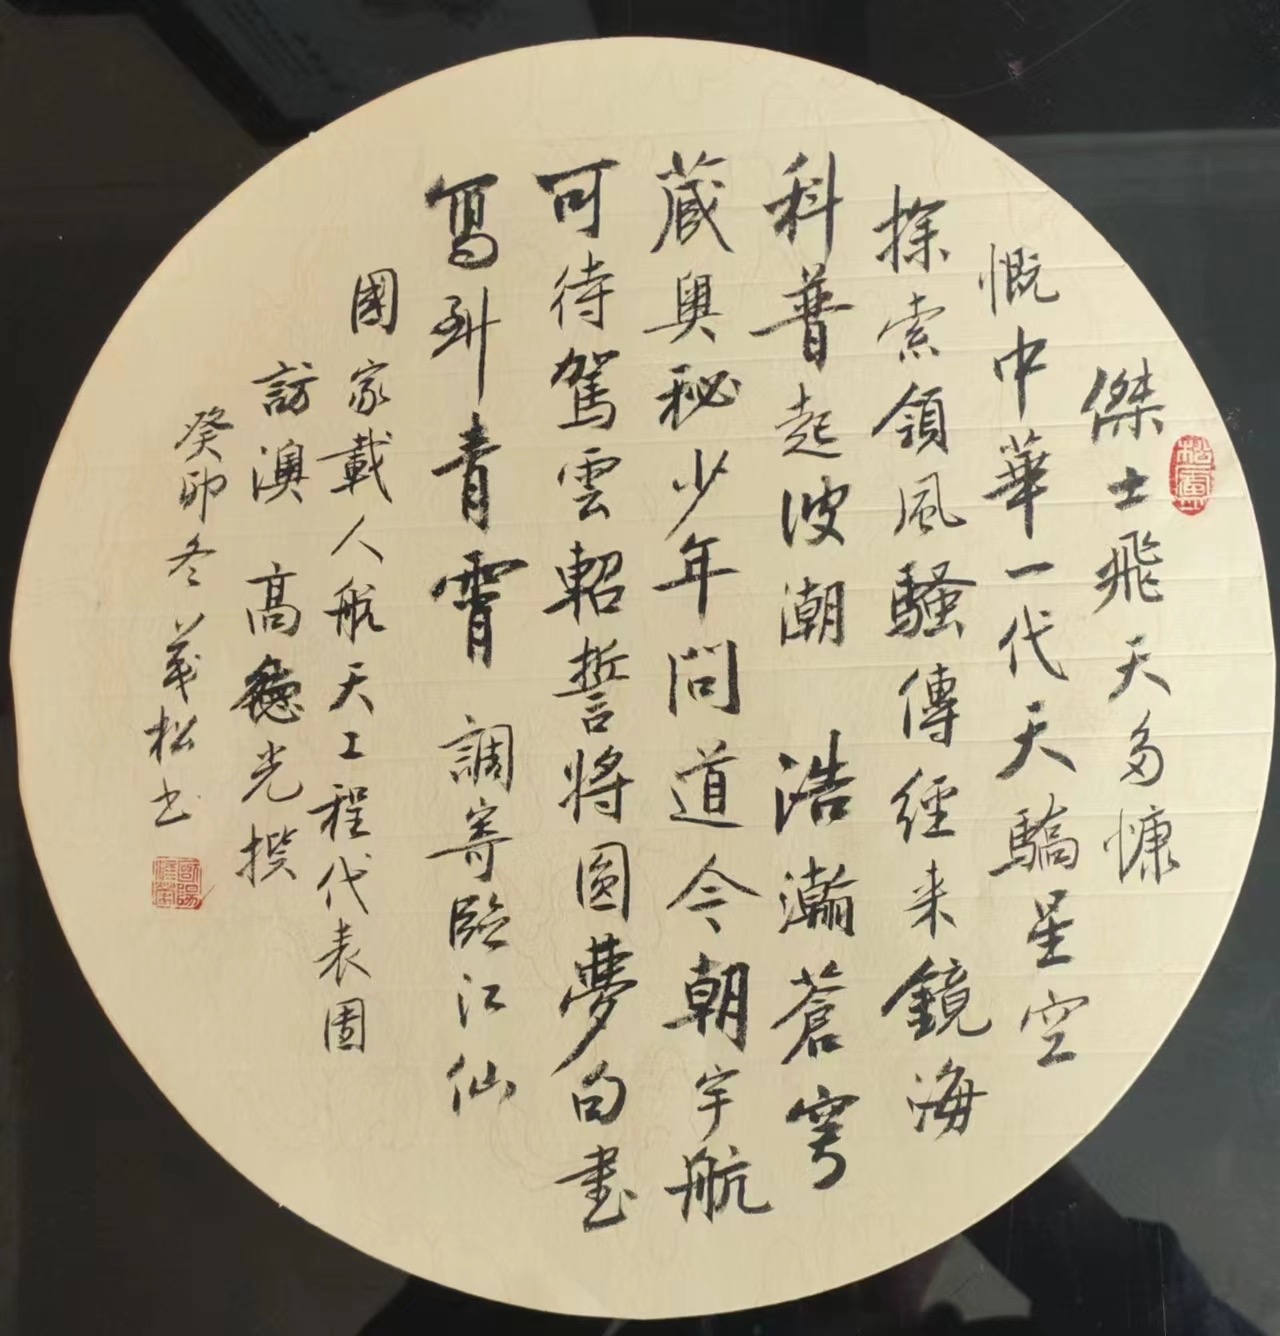 傑士飛天多慷
慨中華一代天驕星空
探索領風騷傳經来鏡海
科普起波潮 浩瀚蒼穹
藏奥秘少年問道今朝宇航
可待駕雲軺誓將圓夢句書
寫到青霄 調寄臨江仙
國家載人航天工程代表團
訪澳 高德光撰
癸卯冬義松书